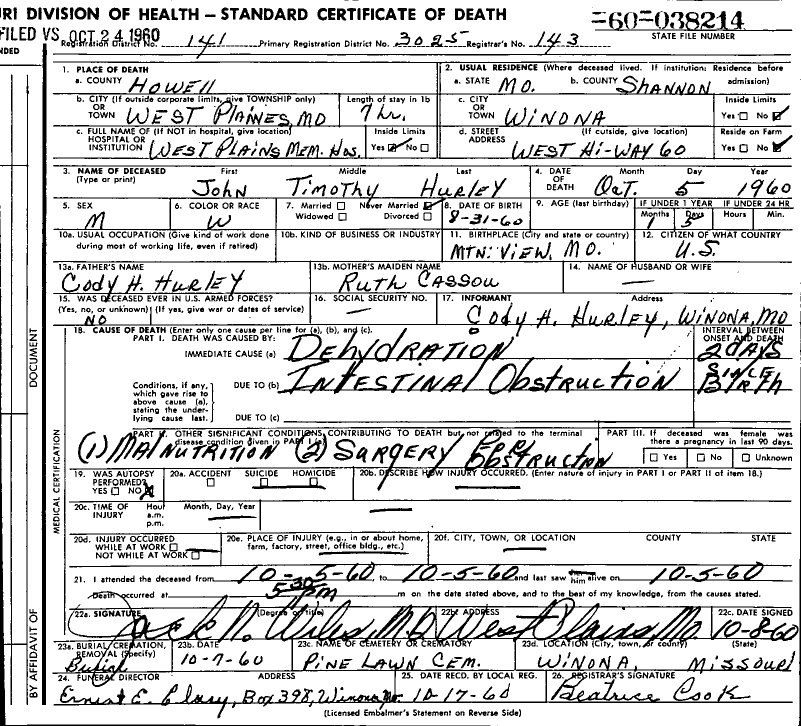 URI DIVISION OF HEALTH — STANDARD CERTIFICATE OF DEATH
=60=038214
STATE FILE NUMBER
FILED VS OCT 24 1960
Registration District No. 141 Primary Registration District No. 3025 Registrar's No. 143
1. PLACE OF DEATH
a. COUNTY HOWELL
2. USUAL RESIDENCE (Where deceased lived. If institution: Residence before admission)
a. STATE MO. b. COUNTY SHANNON
b. CITY (If outside corporate limits, give TOWNSHIP only) OR TOWN WEST PLAINES, MO
Length of stay in 1b 7 hr.
c. CITY OR TOWN WINONA
Inside Limits Yes No
c. FULL NAME OF (If NOT in hospital, give location) HOSPITAL OR INSTITUTION WEST PLAINS MEM. HOS.
Inside Limits Yes No
d. STREET ADDRESS (If outside, give location) WEST HI-WAY 60
Reside on Farm Yes No
3. NAME OF DECEASED (Type or print) First Middle Last
JOHN TIMOTHY HURLEY
4. DATE OF DEATH Month Day Year
OCT. 5 1960
5. SEX M
6. COLOR OR RACE W
7. Married Never Married Widowed Divorced
8. DATE OF BIRTH 8-31-60
9. AGE (last birthday) IF UNDER 1 YEAR IF UNDER 24 HR
Months 1 Days 5 Hours Min.
10a. USUAL OCCUPATION (Give kind of work done during most of working life, even if retired)
10b. KIND OF BUSINESS OR INDUSTRY
11. BIRTHPLACE (City and state or country) MTN. VIEW, MO.
12. CITIZEN OF WHAT COUNTRY U.S.
13a. FATHER'S NAME Cody H. HURLEY
13b. MOTHER'S MAIDEN NAME RUTH CASSOU
14. NAME OF HUSBAND OR WIFE —
15. WAS DECEASED EVER IN U.S. ARMED FORCES? (Yes, no, or unknown) (If yes, give war or dates of service) NO
16. SOCIAL SECURITY NO. —
17. INFORMANT Address
Cody H. HURLEY, WINONA, MO
18. CAUSE OF DEATH (Enter only one cause per line for (a), (b), and (c).
PART I. DEATH WAS CAUSED BY:
INTERVAL BETWEEN ONSET AND DEATH
IMMEDIATE CAUSE (a) DEHYDRATION 2 DAYS
Conditions, if any, which gave rise to above cause (a), stating the underlying cause last.
DUE TO (b) INTESTINAL OBSTRUCTION SINCE BIRTH
DUE TO (c)
PART II. OTHER SIGNIFICANT CONDITIONS, CONTRIBUTING TO DEATH but not related to the terminal disease condition given in PART I (a)
(1) MALNUTRITION (2) SURGERY FOR OBSTRUCTION
PART III. If deceased was female was there a pregnancy in last 90 days.
Yes No Unknown
19. WAS AUTOPSY PERFORMED? YES NO
20a. ACCIDENT SUICIDE HOMICIDE
20b. DESCRIBE HOW INJURY OCCURRED. (Enter nature of injury in PART I or PART II of item 18.)
20c. TIME OF INJURY Hour a.m. p.m. Month, Day, Year
20d. INJURY OCCURRED WHILE AT WORK NOT WHILE AT WORK
20e. PLACE OF INJURY (e.g., in or about home, farm, factory, street, office bldg., etc.)
20f. CITY, TOWN, OR LOCATION COUNTY STATE
21. I attended the deceased from 10-5-60 to 10-5-60 and last saw him alive on 10-5-60
Death occurred at 5:30 PM m on the date stated above, and to the best of my knowledge, from the causes stated.
22a. SIGNATURE (Degree or title) Jack N. Wiles, M.D.
22b. ADDRESS West Plains, Mo.
22c. DATE SIGNED 10-8-60
23a. BURIAL, CREMATION, REMOVAL (Specify) Burial
23b. DATE 10-7-60
23c. NAME OF CEMETERY OR CREMATORY PINE LAWN CEM.
23d. LOCATION (City, town, or county) (State) WINONA, MISSOURI
24. FUNERAL DIRECTOR ADDRESS
Ernest E. Clary, Box 398, Winona Mo.
25. DATE RECD. BY LOCAL REG. 10-17-60
26. REGISTRAR'S SIGNATURE Beatrice Cook
(Licensed Embalmer's Statement on Reverse Side)
NDED
DOCUMENT
MEDICAL CERTIFICATION
BY AFFIDAVIT OF